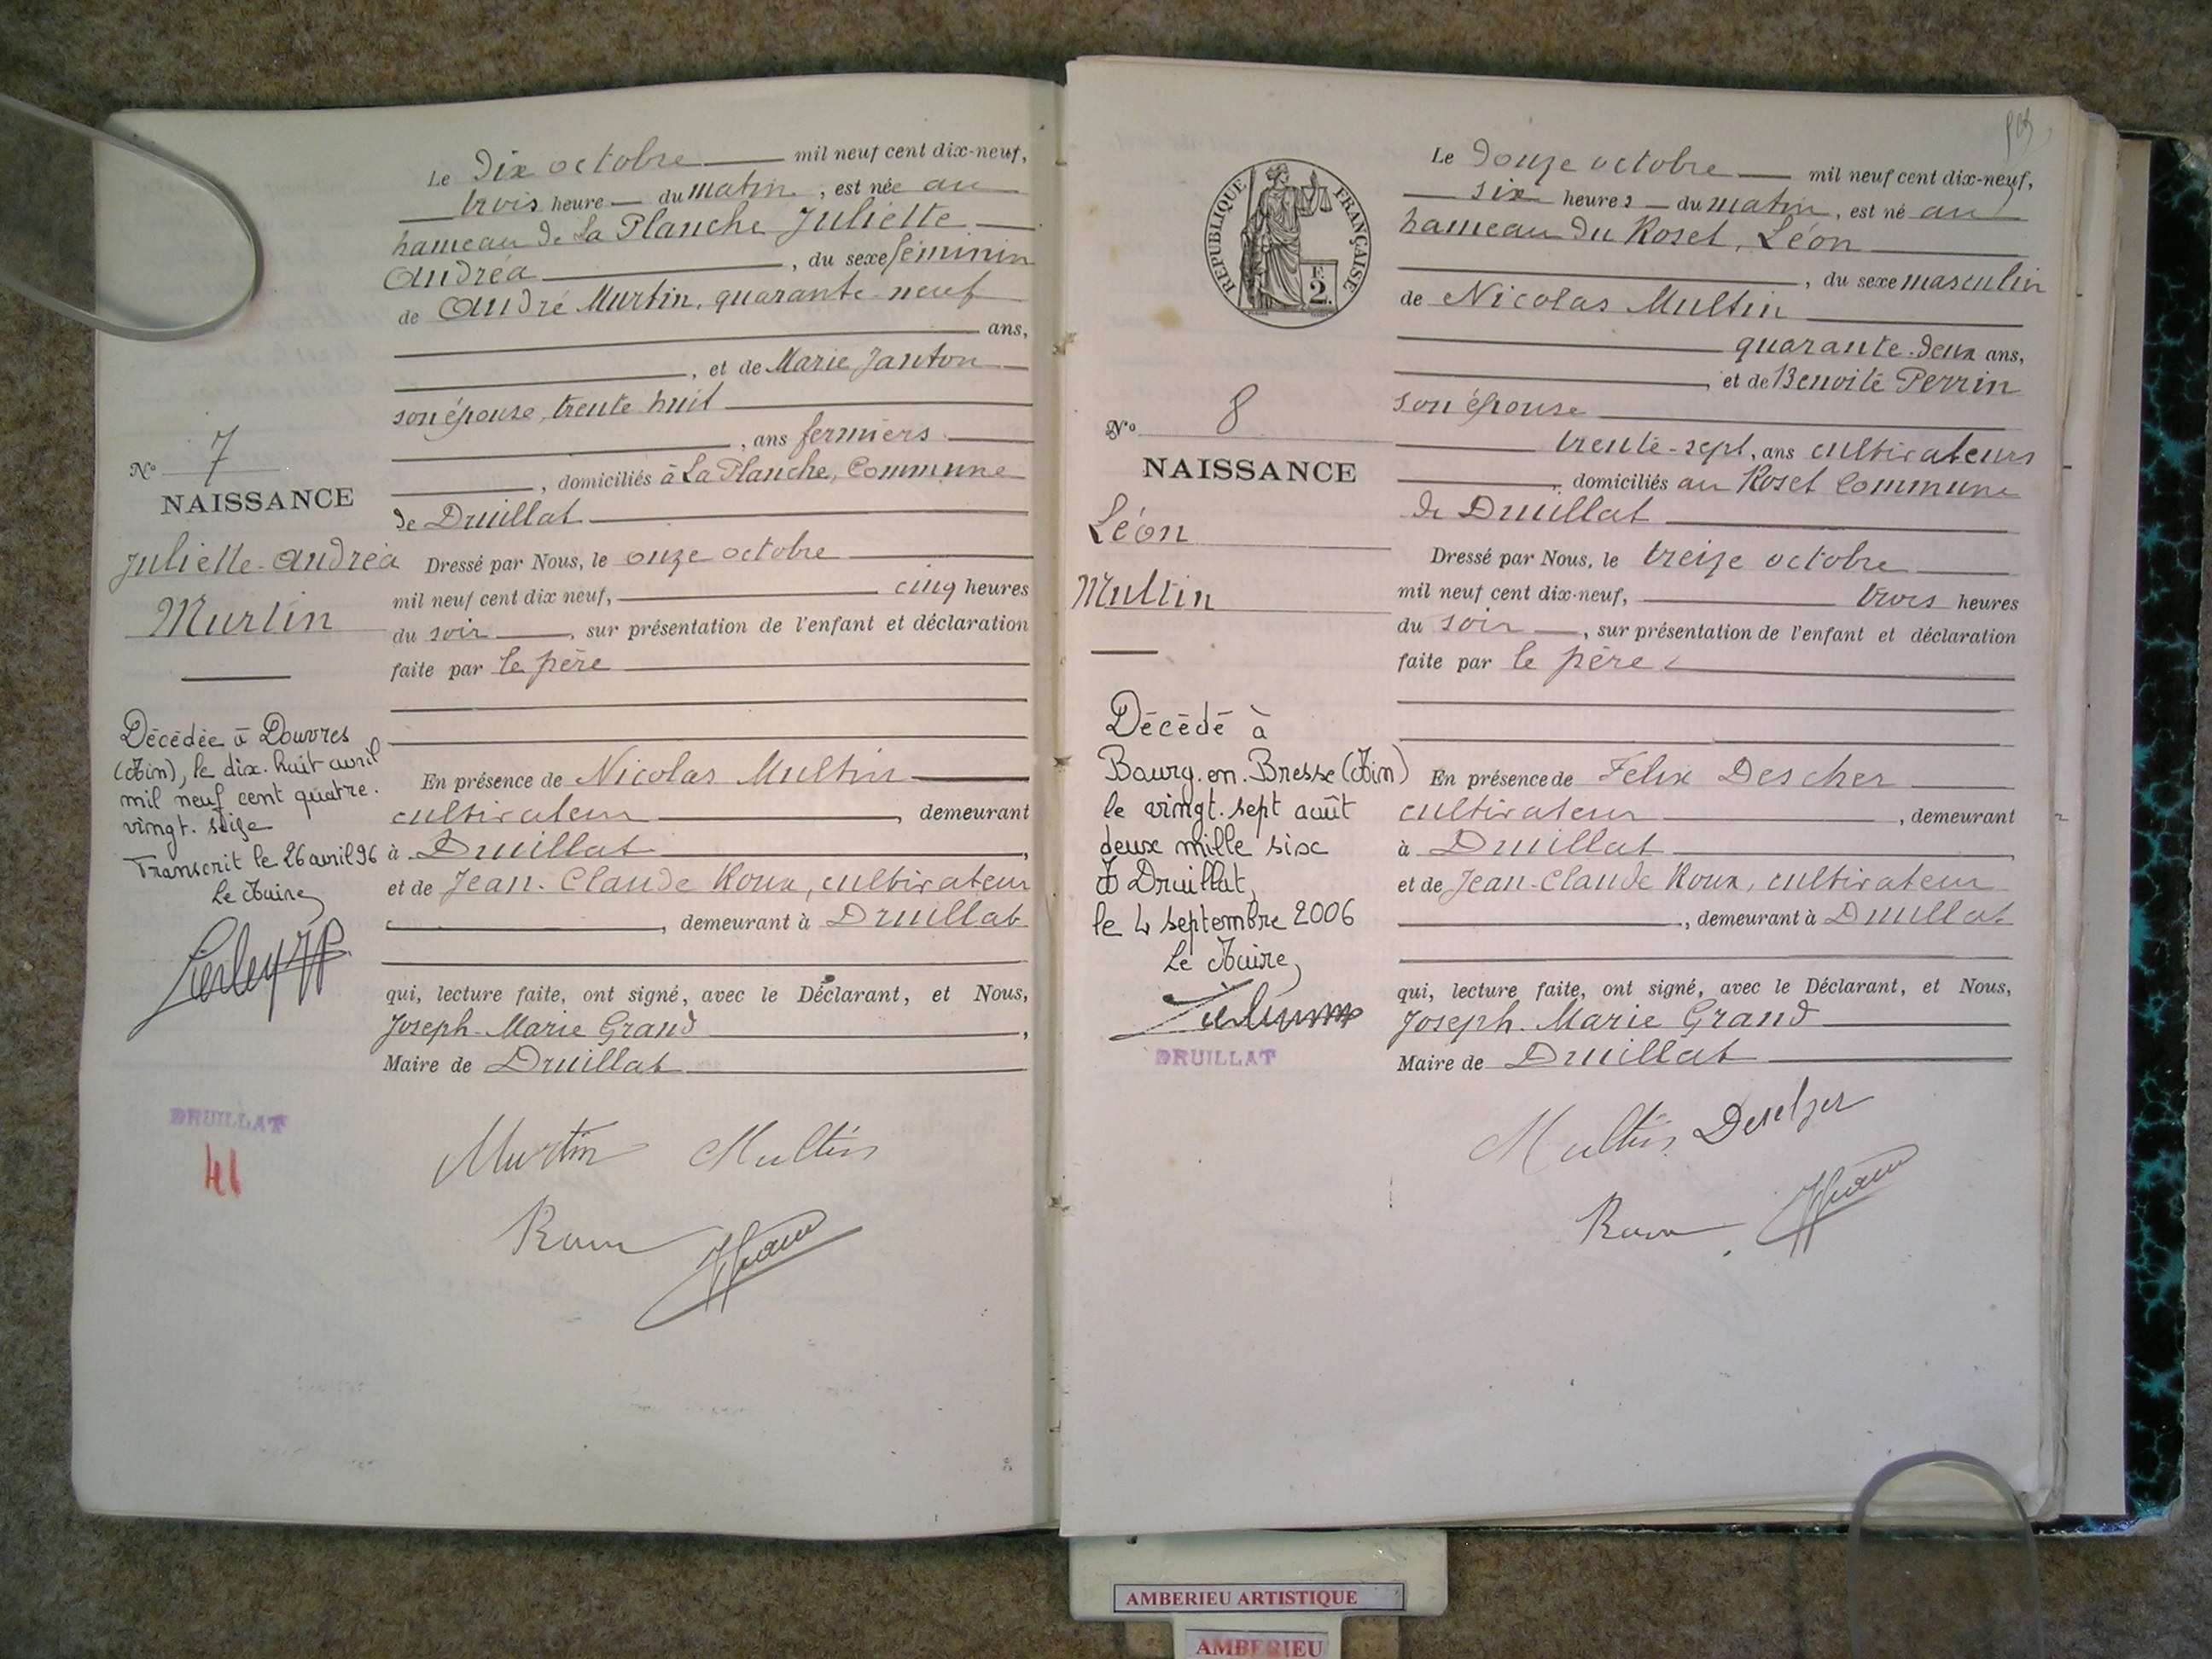 Le Dix octobre mil neuf cent dix-neuf,
trois heure du matin, est née au
hameau de La Planche Juliette
Andréa, du sexe féminin
de André Murtin, quarante-neuf
ans,
, et de Marie Janton
son épouse, trente huit
, ans fermiers
, domiciliés à La Planche, Commune
de Druillat
Dressé par Nous, le onze octobre
mil neuf cent dix neuf, cinq heures
du soir, sur présentation de l'enfant et déclaration
faite par le père
En présence de Nicolas Multin
cultivateur, demeurant
à Druillat,
et de Jean-Claude Roux, cultivateur
, demeurant à Druillat
qui, lecture faite, ont signé, avec le Déclarant, et Nous,
Joseph-Marie Grand,
Maire de Druillat
Murtin Multin
Roux
No 7
NAISSANCE
Juliette-Andréa
Murtin
Décédée à Douvres
(Ain), le dix-huit avril
mil neuf cent quatre-
vingt-seize
Transcrit le 26 avril 96
Le Maire,
DRUILLAT
41
Le Douze octobre mil neuf cent dix-neuf,
six heures du matin, est né au
hameau du Roset, Léon
, du sexe masculin
de Nicolas Multin
quarante-deux ans,
, et de Benoite Perrin
son épouse
trente-sept, ans cultivateurs
, domiciliés au Roset Commune
de Druillat
Dressé par Nous, le treize octobre
mil neuf cent dix-neuf, trois heures
du soir, sur présentation de l'enfant et déclaration
faite par le père
En présence de Félix Descher
cultivateur, demeurant
à Druillat
et de Jean-Claude Roux, cultivateur
, demeurant à Druillat
qui, lecture faite, ont signé, avec le Déclarant, et Nous,
Joseph-Marie Grand
Maire de Druillat
Multin
Roux
RÉPUBLIQUE FRANÇAISE
F.
2.
No 8
NAISSANCE
Léon
Multin
Décédé à
Bourg-en-Bresse (Ain)
le vingt-sept août
deux mille six
A Druillat,
le 4 septembre 2006
Le Maire,
DRUILLAT
AMBERIEU ARTISTIQUE
AMBERIEU